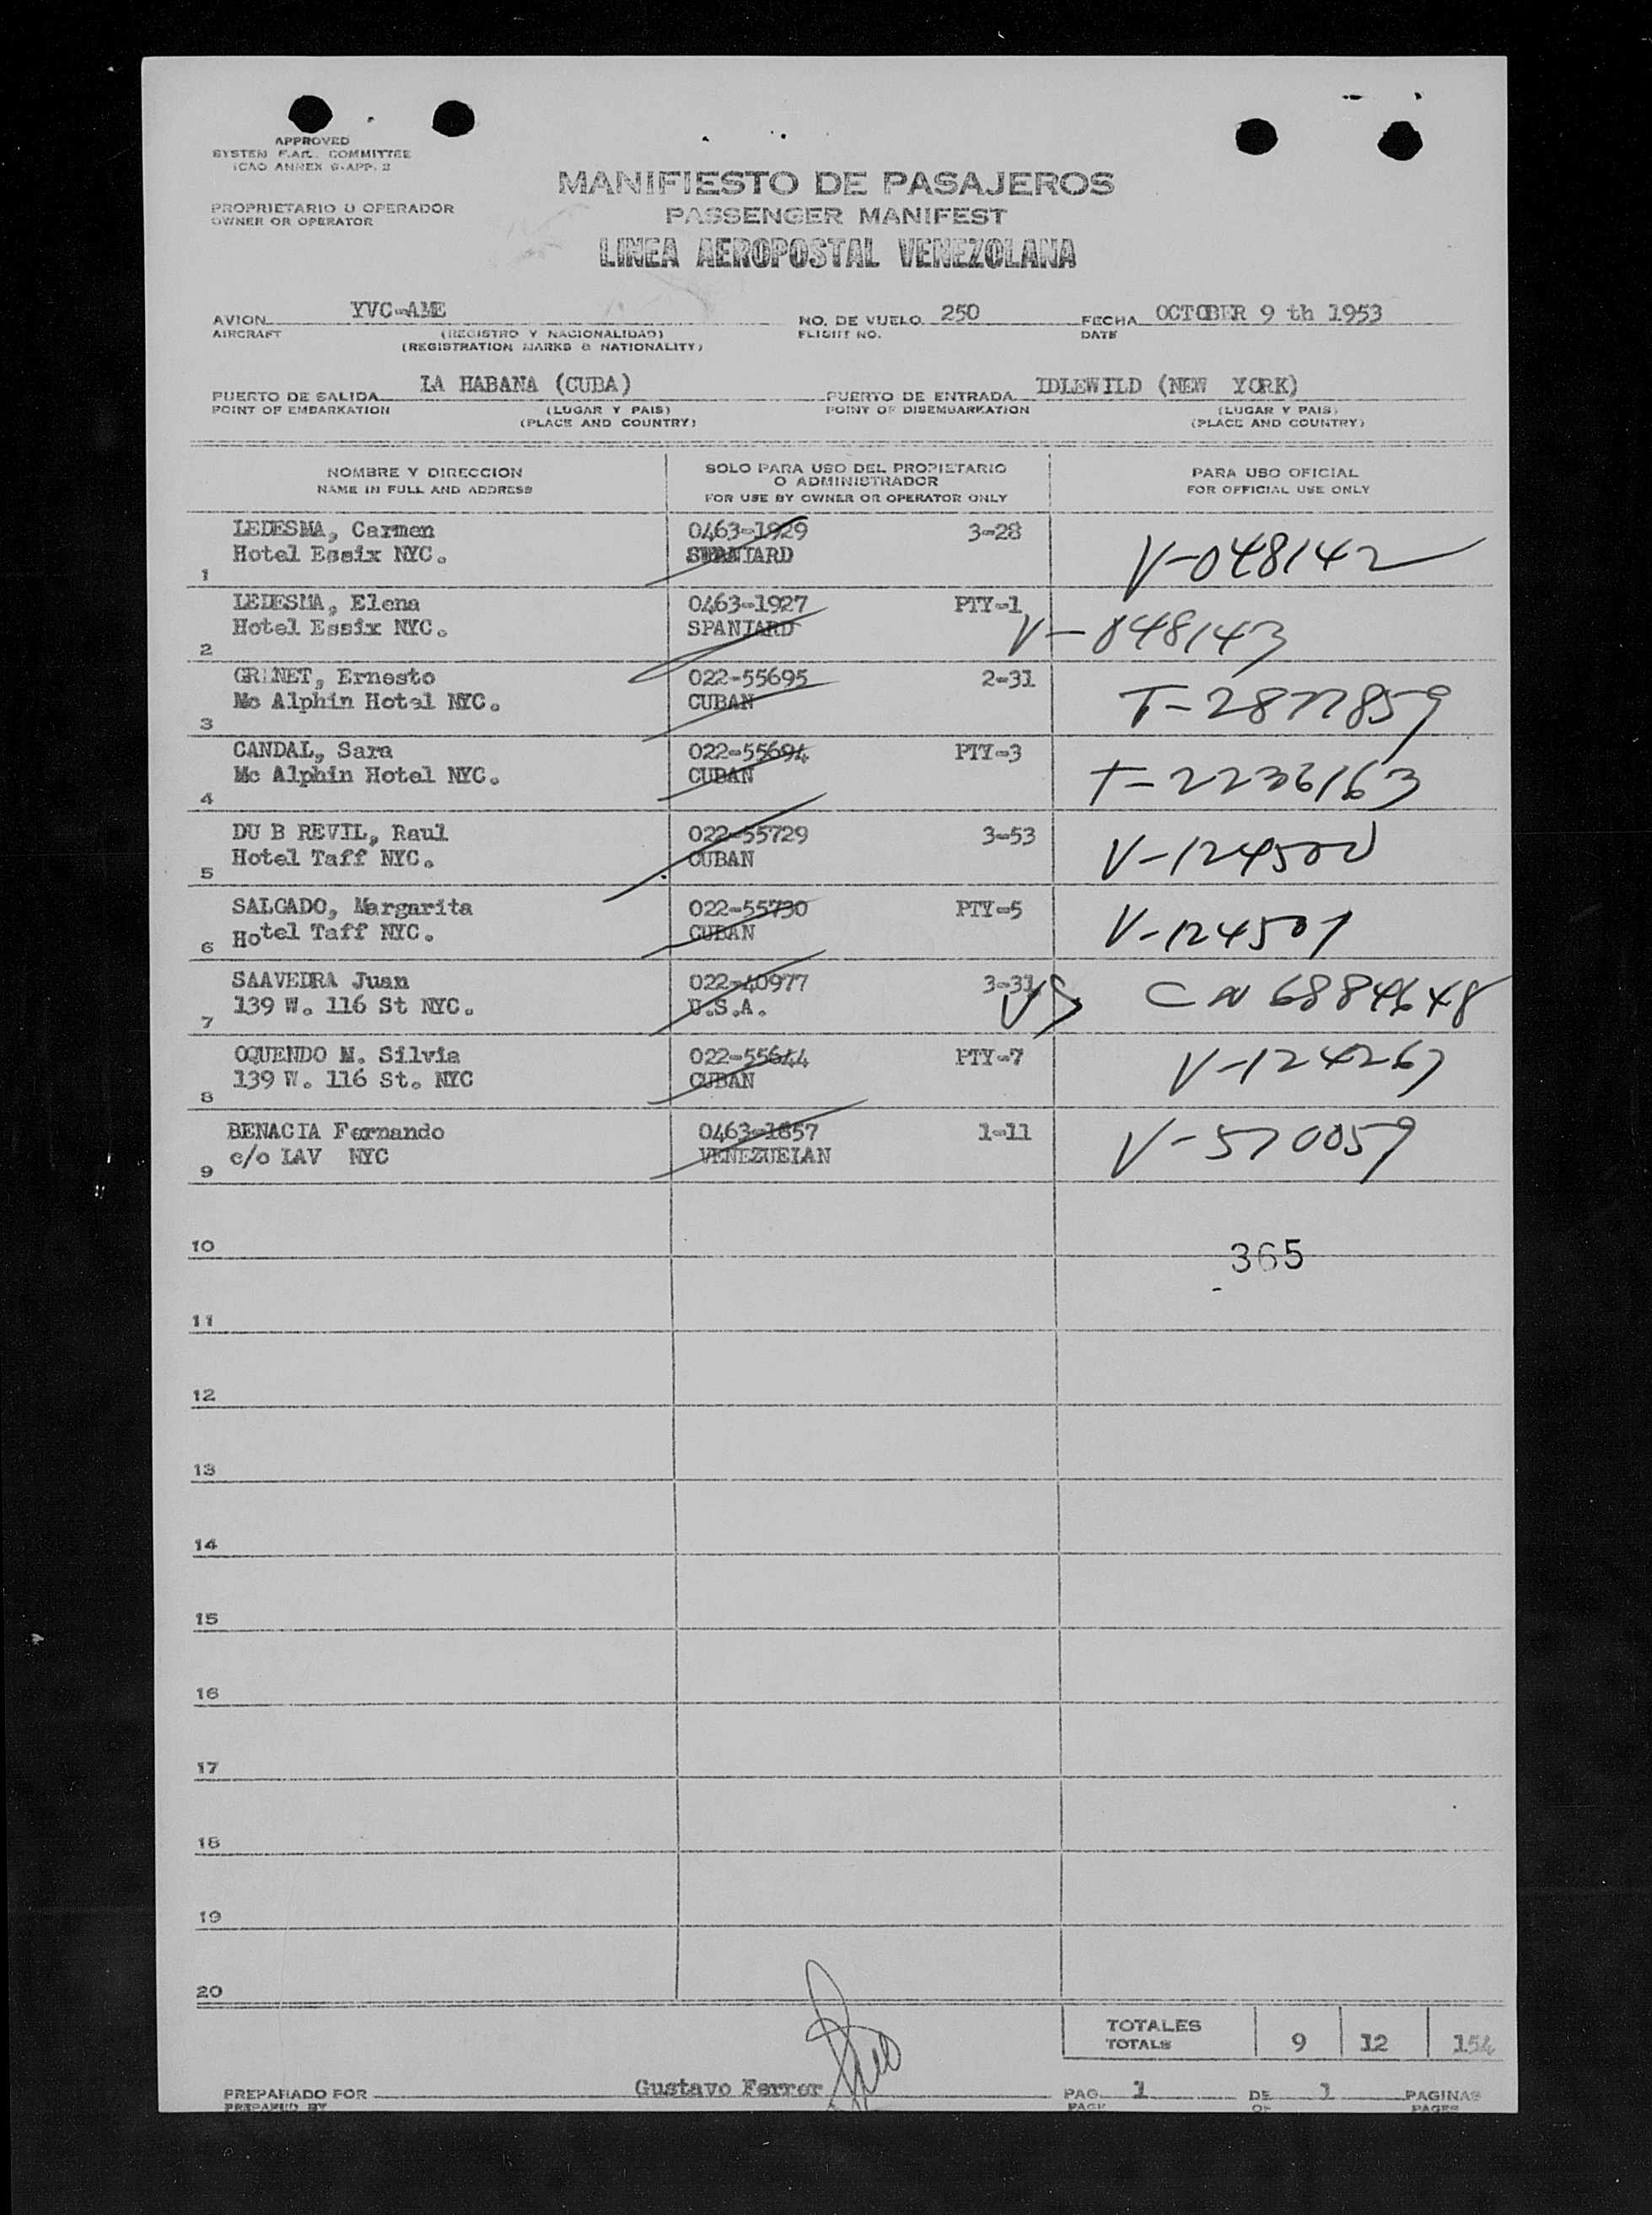 APPROVED
SYSTEM F.Al. COMMITTEE
ICAO ANNEX 9-APP. 2
MANIFIESTO DE PASAJEROS
PROPRIETARIO U OPERADOR
OWNER OR OPERATOR
PASSENGER MANIFEST
LINEA AEROPOSTAL VENEZOLANA
AVION YVC-AME NO. DE VUELO 250 FECHA OCTOBER 9 th 1953
AIRCRAFT (REGISTRO Y NACIONALIDAD) FLIGHT NO. DATE
(REGISTRATION MARKS & NATIONALITY)
PUERTO DE SALIDA LA HABANA (CUBA) PUERTO DE ENTRADA IDLEWILD (NEW YORK)
POINT OF EMBARKATION (LUGAR Y PAIS) POINT OF DISEMBARKATION (LUGAR Y PAIS)
(PLACE AND COUNTRY) (PLACE AND COUNTRY)
NOMBRE Y DIRECCION SOLO PARA USO DEL PROPIETARIO PARA USO OFICIAL
O ADMINISTRADOR
NAME IN FULL AND ADDRESS FOR USE BY OWNER OR OPERATOR ONLY FOR OFFICIAL USE ONLY
LEDESMA, Carmen 0463-1929 3-28
Hotel Essix NYC. SPANIARD V-048142
1
LEDESMA, Elena 0463-1927 PTY-1
Hotel Essix NYC. SPANIARD V-048143
2
GRENET, Ernesto 022-55695 2-31
Mc Alphin Hotel NYC. CUBAN T-2877859
3
CANDAL, Sara 022-55694 PTY-3
Mc Alphin Hotel NYC. CUBAN T-2236163
4
DU B REVIL, Raul 022-55729 3-53
Hotel Taff NYC. CUBAN V-124500
5
SALGADO, Margarita 022-55730 PTY-5
Hotel Taff NYC. CUBAN V-124501
6
SAAVEDRA Juan 022-40977 3-31 US CN 6884648
139 W. 116 St NYC. U.S.A.
7
OQUENDO M. Silvia 022-55644 PTY-7
139 W. 116 St. NYC CUBAN V-124267
8
BENACIA Fernando 0463-1857 1-11
c/o LAV NYC VENEZUELAN V-570059
9
10 365
11
12
13
14
15
16
17
18
19
20
TOTALES
TOTALS 9 12 154
PREPARADO POR Gustavo Ferrer PAG. 1 DE 1 PAGINAS
PREPARED BY PAGE OF PAGES